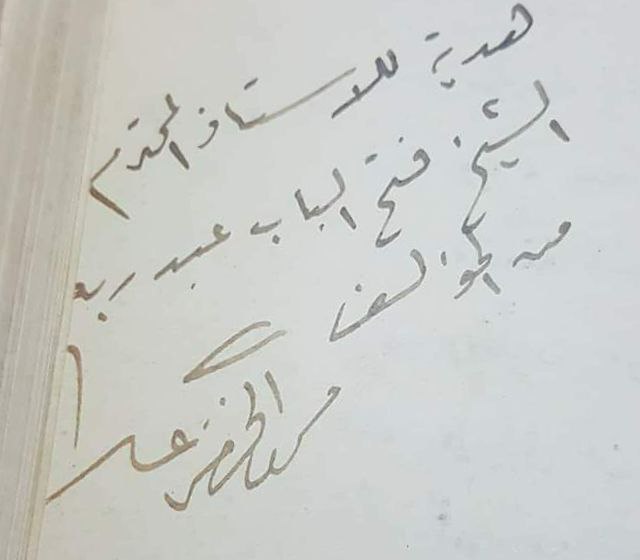 هدية للأستاذ المحترم
الشيخ فتح الباب عبد ربه
من المؤلف
محمد الخضر